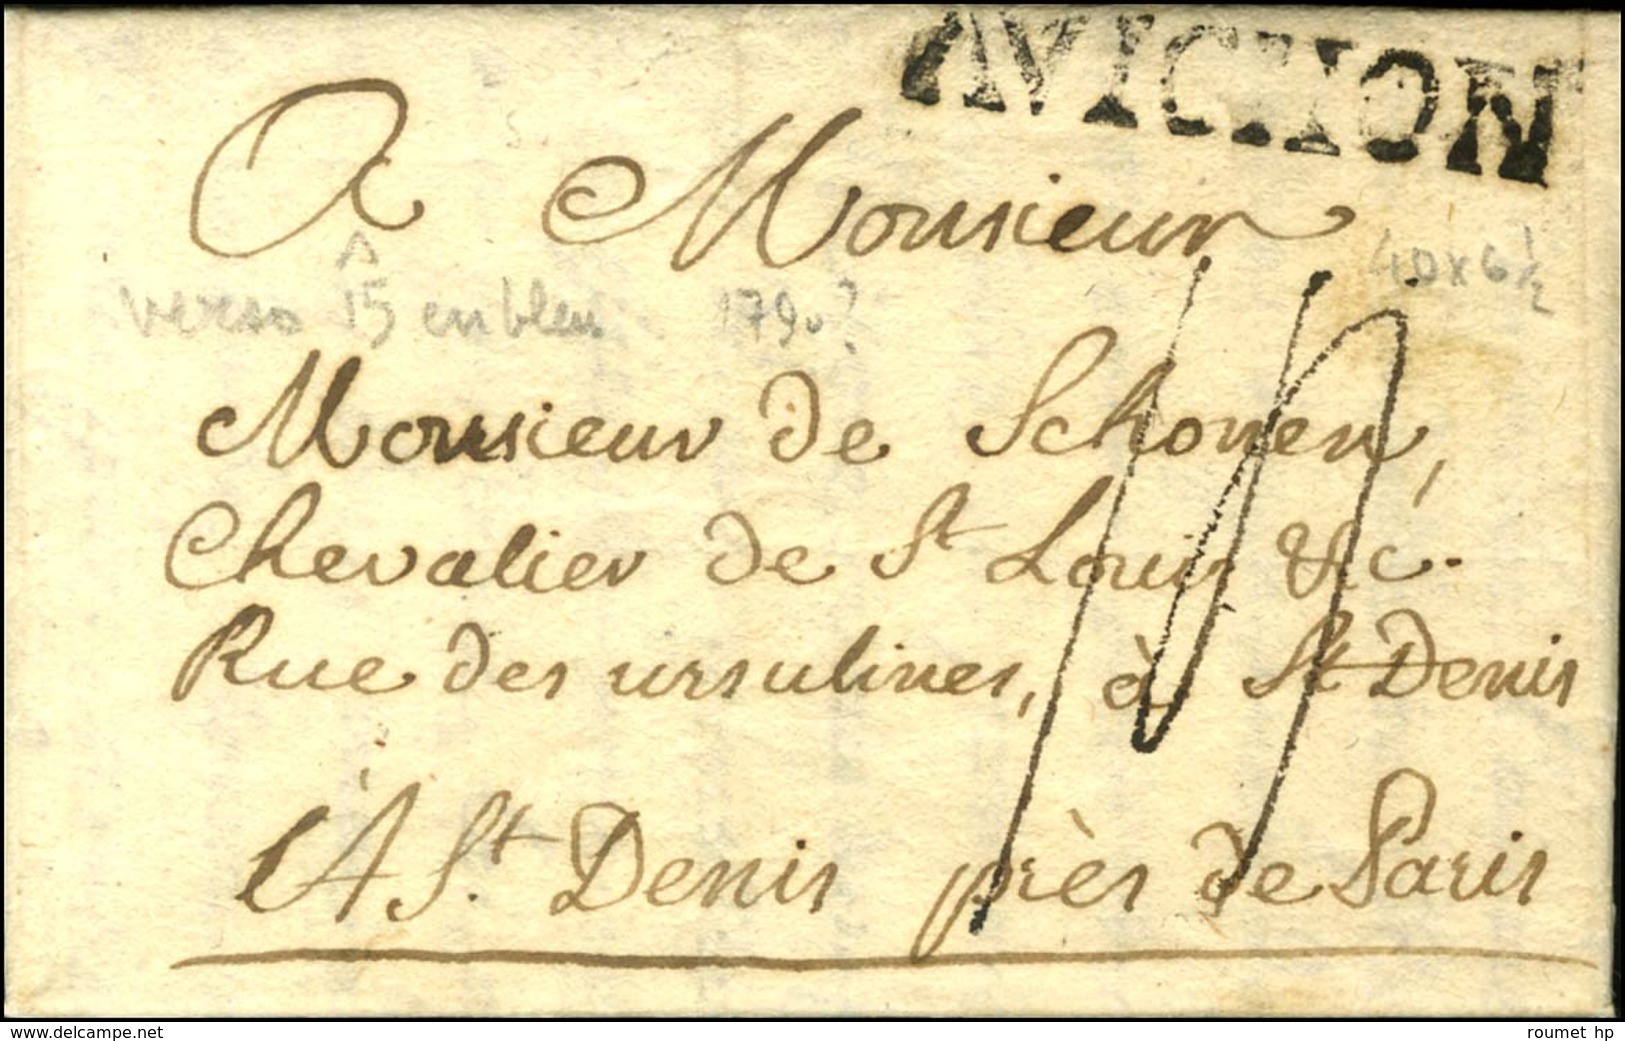 AVIGNON
A Monsieur
40 x 6 1/2
A
verso 15 en bleu 1790?
Monsieur de Schonen,
Chevalier de St Louis &c.
Rue des ursulines, à St Denis
A St. Denis près de Paris
www.delcampe.net
roumet hp